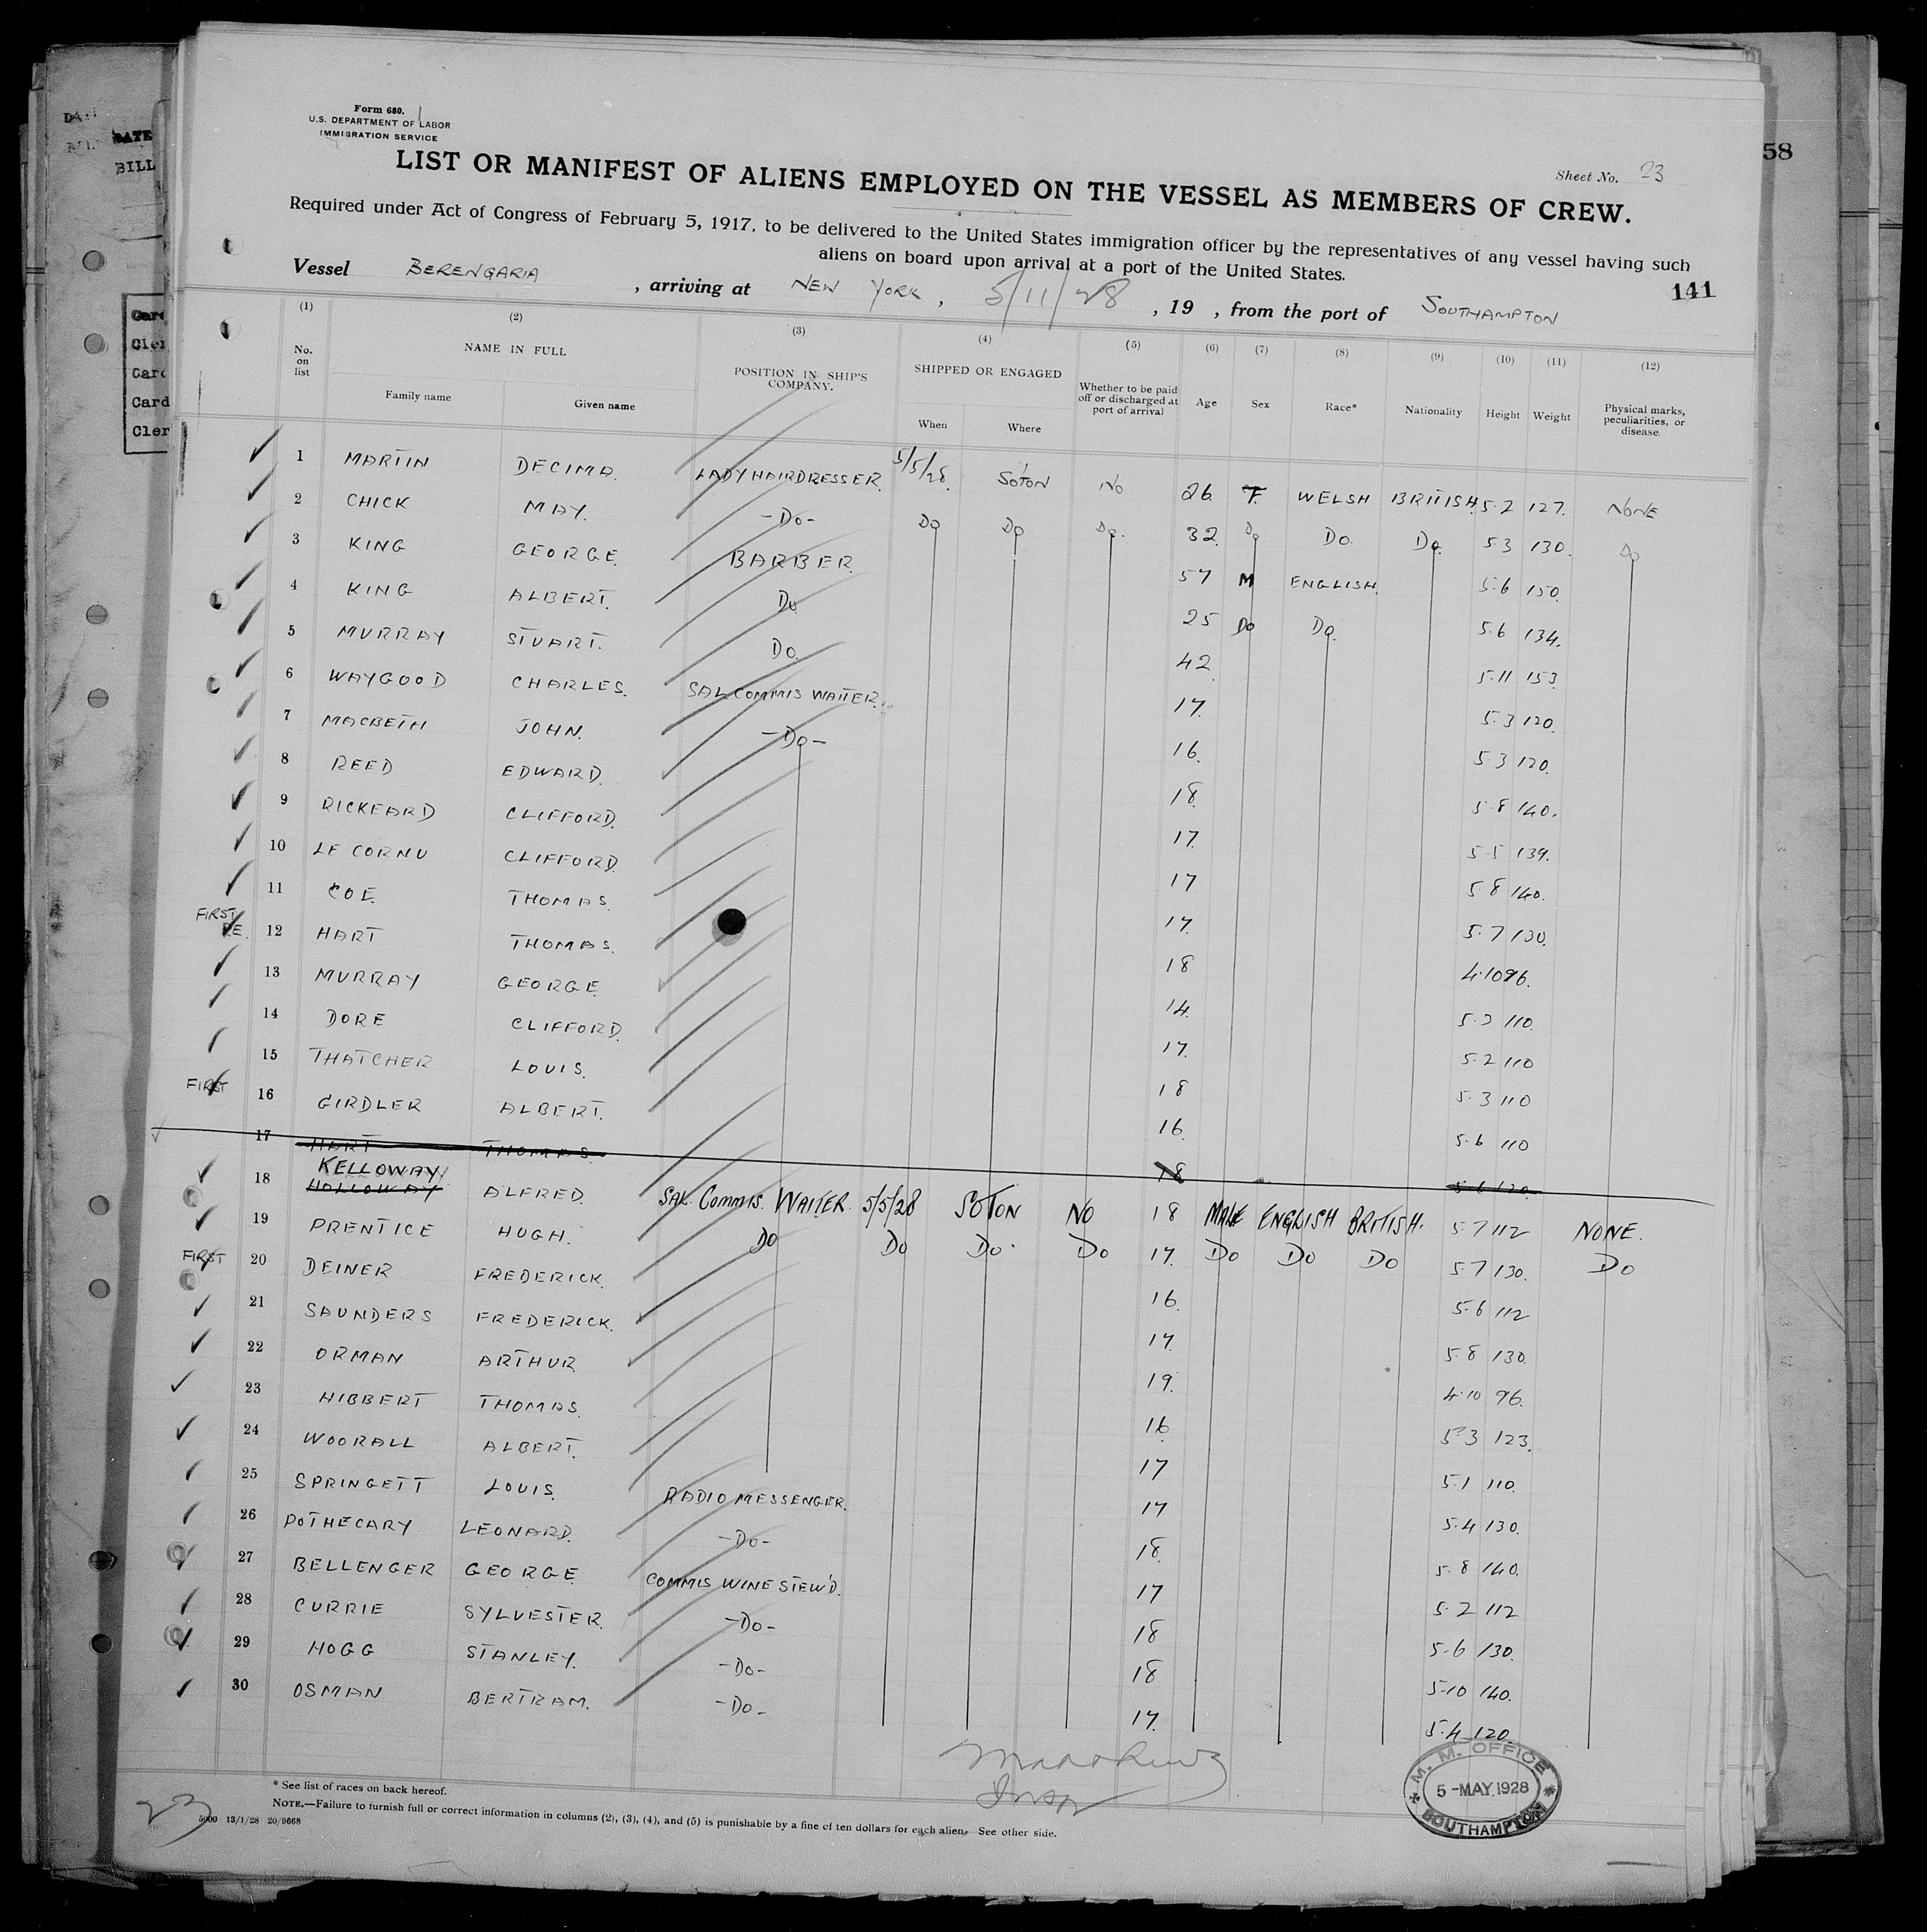 Form 680.
U.S. DEPARTMENT OF LABOR
IMMIGRATION SERVICE
58
Sheet No. 23
LIST OR MANIFEST OF ALIENS EMPLOYED ON THE VESSEL AS MEMBERS OF CREW.
Required under Act of Congress of February 5, 1917, to be delivered to the United States immigration officer by the representatives of any vessel having such
aliens on board upon arrival at a port of the United States.
141
Vessel BERENGARIA , arriving at NEW YORK , 5/11/28 , 19 , from the port of SOUTHAMPTON
(1) (2) (3) (4) (5) (6) (7) (8) (9) (10) (11) (12)
No. on list NAME IN FULL Family name Given name POSITION IN SHIP'S COMPANY. SHIPPED OR ENGAGED When Where Whether to be paid off or discharged at port of arrival Age Sex Race* Nationality Height Weight Physical marks, peculiarities, or disease.
1 MARTIN DECIMA. LADY HAIRDRESSER. 5/5/28. SOTON NO 26. F. WELSH BRITISH. 5.2 127. NONE
2 CHICK MAY. -DO- DO DO DO. 32. DO DO. DO. 5.3 130. DO
3 KING GEORGE. BARBER. 57 M ENGLISH. 5.6 150.
4 KING ALBERT. DO 25 DO DO. 5.6 134.
5 MURRAY STUART. DO. 42 5.11 153.
6 WAYGOOD CHARLES. SAL COMMIS WAITER. 17. 5.3 120.
7 MACBETH JOHN. -DO- 16. 5.3 120.
8 REED EDWARD. 18. 5.8 140.
9 RICKEARD CLIFFORD. 17. 5.5 139.
10 LE CORNU CLIFFORD. 17 5.8 140.
11 COE. THOMAS. 17. 5.7 130.
FIRST
12 HART THOMAS. 18 4.10 96.
13 MURRAY GEORGE. 14. 5.2 110.
14 DORE CLIFFORD. 17. 5.2 110
15 THATCHER LOUIS. 18 5.3 110
FIRST 16 GIRDLER ALBERT. 16. 5.6 110
17 HART THOMAS. 18
KELLOWAY
18 HOLLOWAY ALFRED. SAL. COMMIS. WAITER. 5/5/28 SOTON NO 18 MALE ENGLISH BRITISH. 5.7 112 NONE.
19 PRENTICE HUGH. DO DO DO. DO 17. DO DO DO 5.7 130. DO
FIRST 20 DEINER FREDERICK. 16. 5.6 112
21 SAUNDERS FREDERICK. 17. 5.8 130.
22 ORMAN ARTHUR 19. 4.10 96.
23 HIBBERT THOMAS. 16. 5.3 123.
24 WOORALL ALBERT. 17 5.1 110.
25 SPRINGETT LOUIS. RADIO MESSENGER. 17 5.4 130.
26 POTHECARY LEONARD. -DO- 18. 5.8 140.
27 BELLENGER GEORGE. COMMIS WINE STEW'D. 17 5.2 112
28 CURRIE SYLVESTER. -DO- 18 5.6 130.
29 HOGG STANLEY. -DO- 18 5.10 140.
30 OSMAN BERTRAM. -DO- 17. 5.4 120.
M. M. OFFICE
5 - MAY. 1928
SOUTHAMPTON
* See list of races on back hereof.
NOTE.—Failure to furnish full or correct information in columns (2), (3), (4), and (5) is punishable by a fine of ten dollars for each alien. See other side.
23
5000 13/1/28 20/9668
DATE
BILL
Card
Card